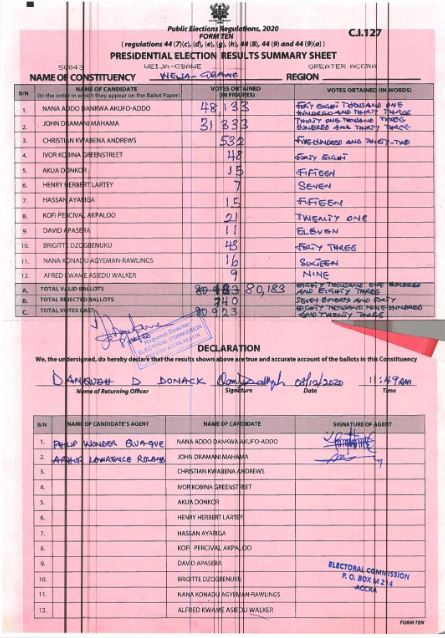 Public Elections Regulations, 2020
FORM TEN
C.I.127
( regulations 44 (7)(c), (d), (e), (g), (h), 44 (8), 44 (9) and 44 (9)(a) )
PRESIDENTIAL ELECTION RESULTS SUMMARY SHEET
WEIJA-GBAWE GREATER ACCRA
NAME OF CONSTITUENCY WEIJA-GBAWE REGION
S/N NAME OF CANDIDATE VOTES OBTAINED VOTES OBTAINED (IN WORDS)
(In the order in which they appear on the Ballot Paper) (IN FIGURES)
1. NANA ADDO DANKWA AKUFO-ADDO 48,133 FORTY EIGHT THOUSAND ONE
HUNDRED AND THIRTY THREE
2. JOHN DRAMANI MAHAMA 31,333 THIRTY ONE THOUSAND THREE
HUNDRED AND THIRTY THREE
3. CHRISTIAN KWABENA ANDREWS 532 FIVE HUNDRED AND THIRTY-TWO
4. IVOR KOBINA GREENSTREET 48 FORTY EIGHT
5. AKUA DONKOR 15 FIFTEEN
6. HENRY HERBERT LARTEY 7 SEVEN
7. HASSAN AYARIGA 15 FIFTEEN
8. KOFI PERCIVAL AKPALOO 21 TWENTY ONE
9. DAVID APASERA 11 ELEVEN
10. BRIGITTE DZOGBENUKU FORTY THREE
11. NANA KONADU AGYEMAN-RAWLINGS 16 SIXTEEN
12. ALFRED KWAME ASIEDU WALKER 9 NINE
A. TOTAL VALID BALLOTS 80,183 EIGHTY THOUSAND ONE HUNDRED
AND EIGHTY THREE
B. TOTAL REJECTED BALLOTS 740 SEVEN HUNDRED AND FORTY
C. TOTAL VOTES CAST 80923 EIGHTY THOUSAND NINE HUNDRED
AND TWENTY THREE
Regional Director
ELECTORAL COMMISSION
DECLARATION
We, the undersigned, do hereby declare that the results shown above are true and accurate account of the ballots in this Constituency
DANQUAH D DONACK 08/12/2020 11:49AM
Name of Returning Officer Signature Date Time
S/N NAME OF CANDIDATE'S AGENT NAME OF CANDIDATE SIGNATURE OF AGENT
1. PHILIP WONDER QUAQUE NANA ADDO DANKWA AKUFO-ADDO
2. ARTHUR LAWRENCE ROLAND JOHN DRAMANI MAHAMA
3. CHRISTIAN KWABENA ANDREWS
4. IVOR KOBINA GREENSTREET
5. AKUA DONKOR
6. HENRY HERBERT LARTEY
7. HASSAN AYARIGA
8. KOFI PERCIVAL AKPALOO
9. DAVID APASERA
10. BRIGITTE DZOGBENUKU
11. NANA KONADU AGYEMAN-RAWLINGS
12. ALFRED KWAME ASIEDU WALKER
ELECTORAL COMMISSION
P. O. BOX M 214
ACCRA
FORM TEN